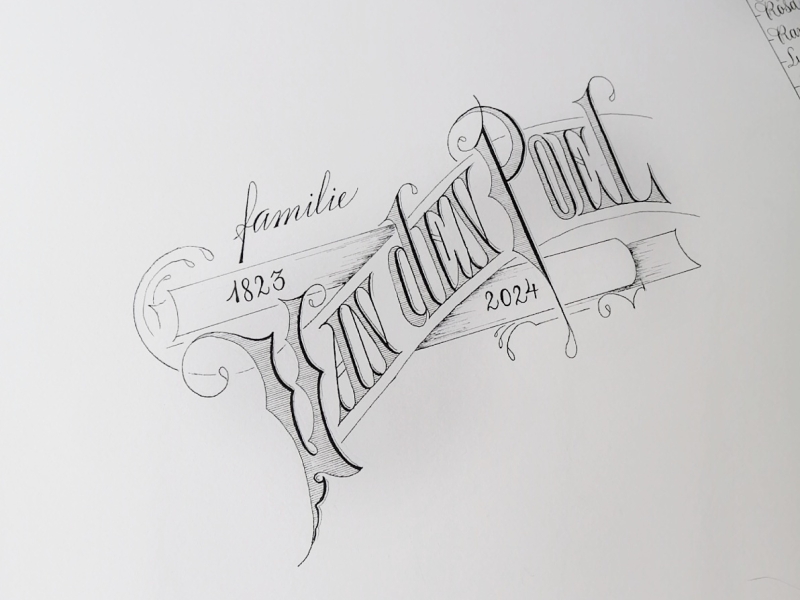 familie
1823
Van den Poel
2024
Rosa